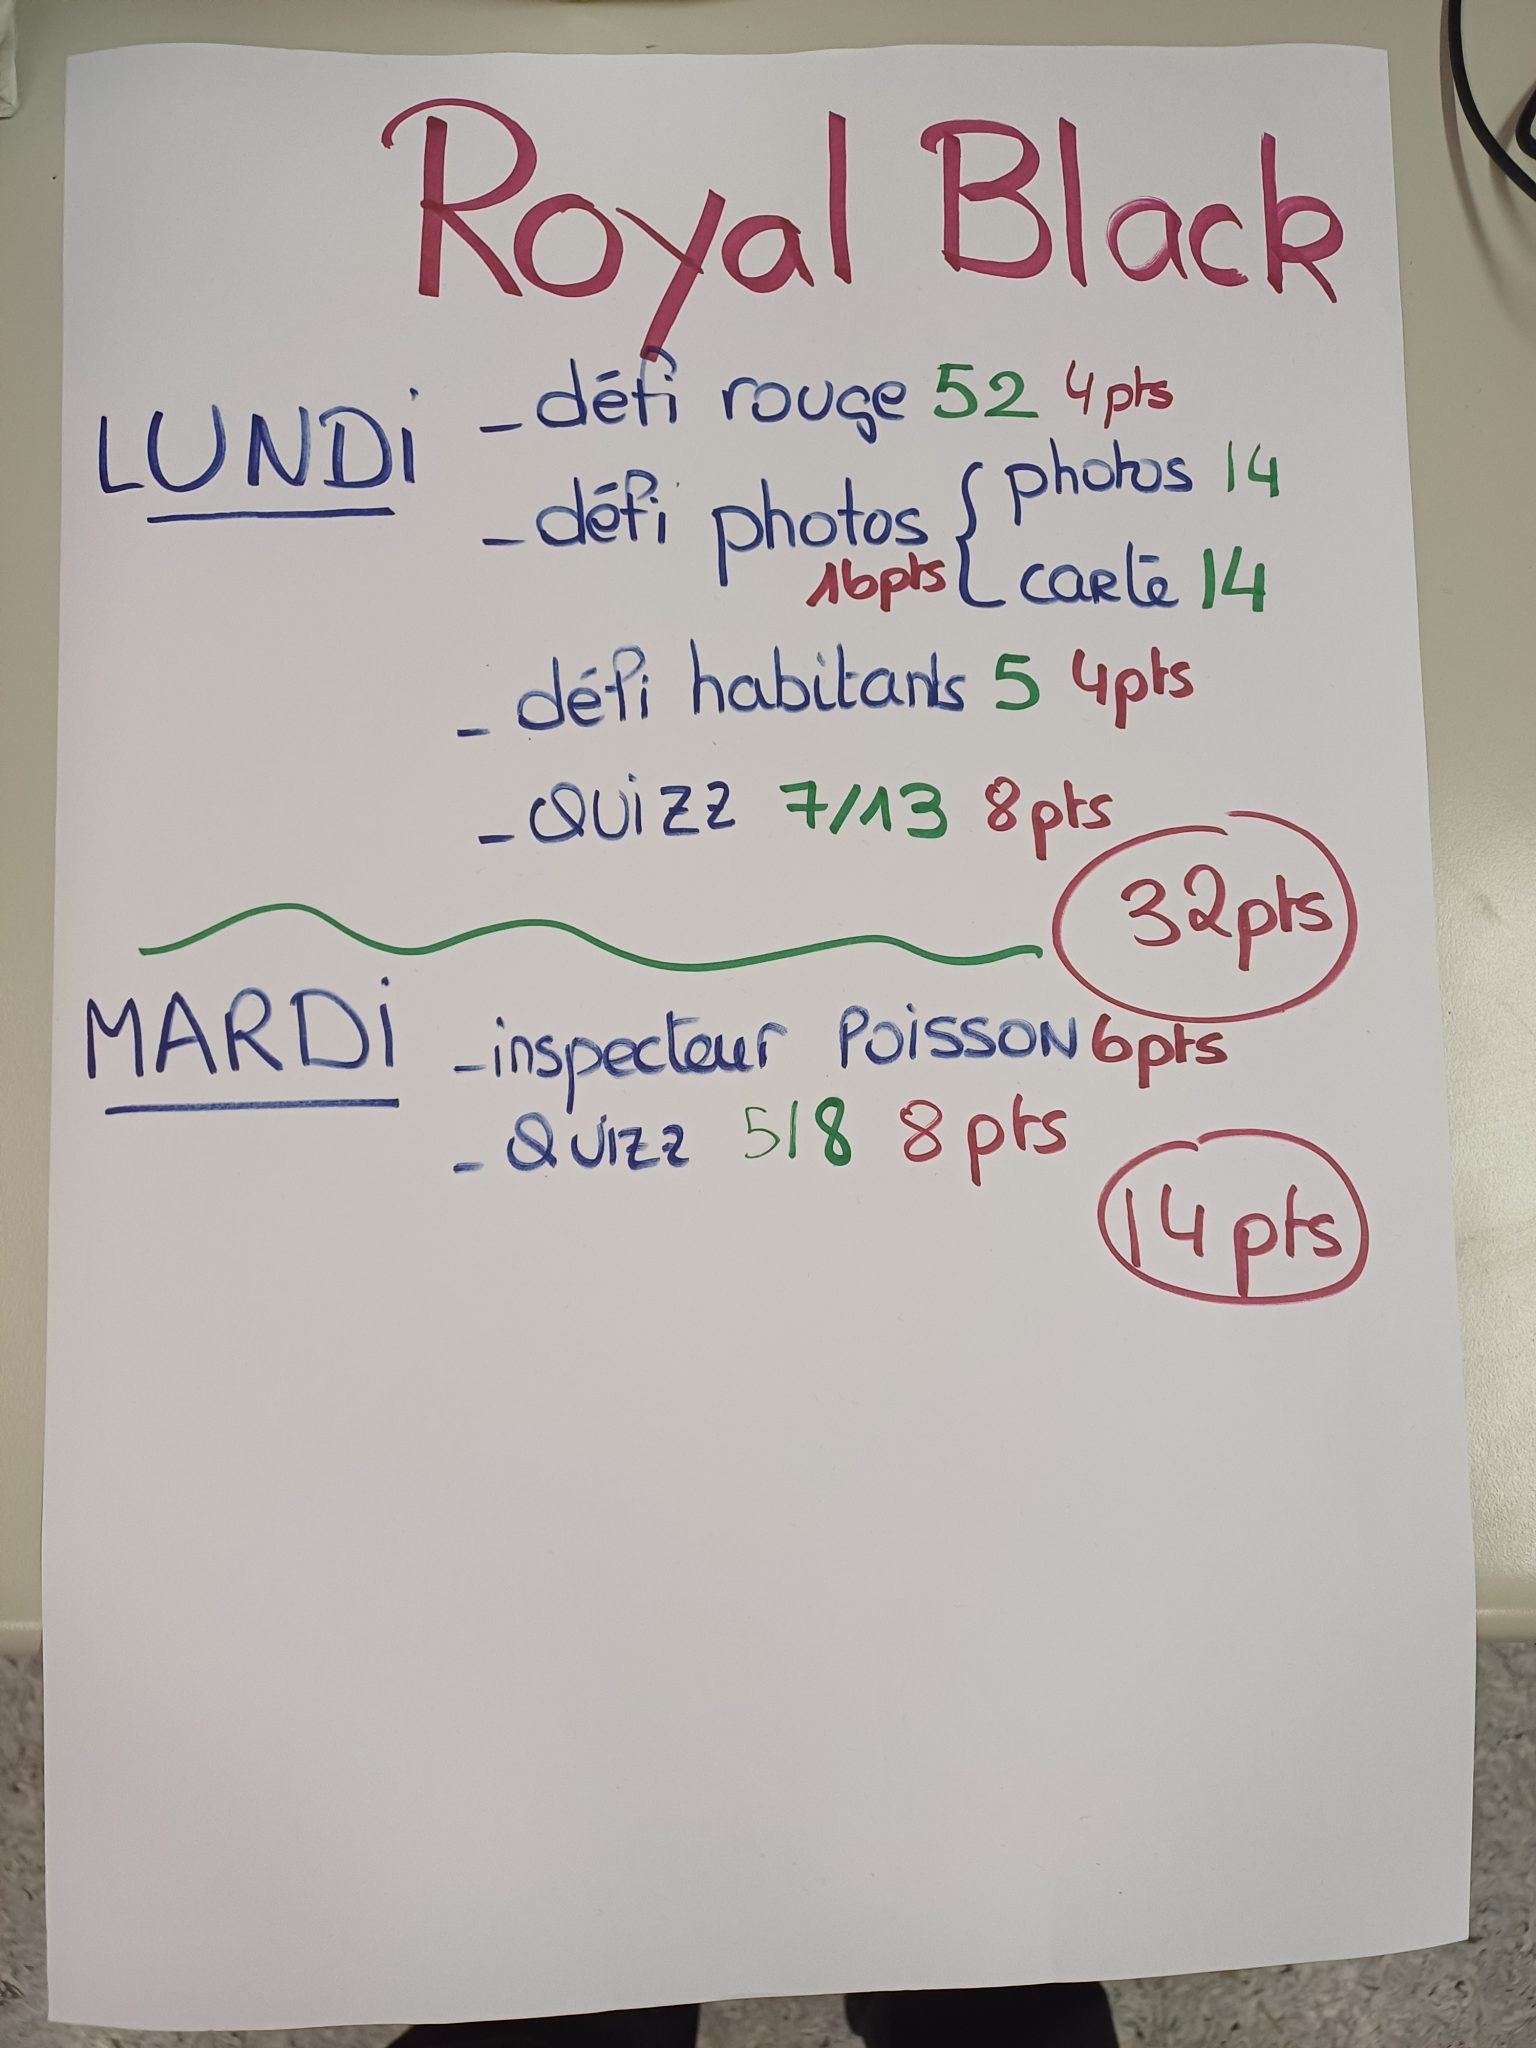 Royal Black
LUNDi
- défi rouge 52 4pts
- défi photos { photos 14
16pts carte 14
- défi habitants 5 4pts
- QUiZZ 7/13 8pts
32pts
MARDi
- inspecteur POiSSON 6pts
- QUiZZ 5/8 8 pts
14 pts